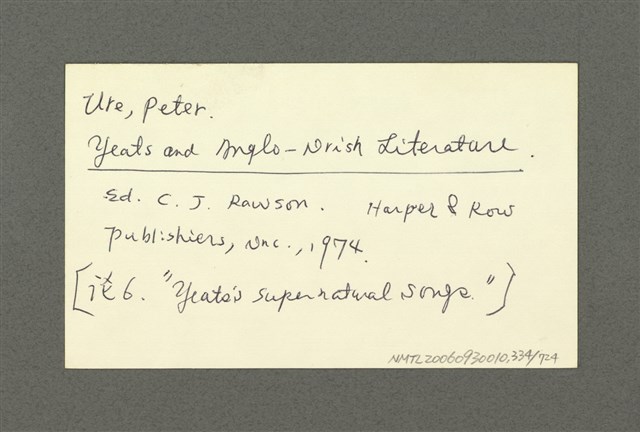 Ure, Peter.
Yeats and Anglo-Irish Literature.
Ed. C. J. Rawson. Harper & Row
Publishiers, Inc., 1974.
[註6. "Yeats's supernatural songs."]
NMTL20060930010,334/724